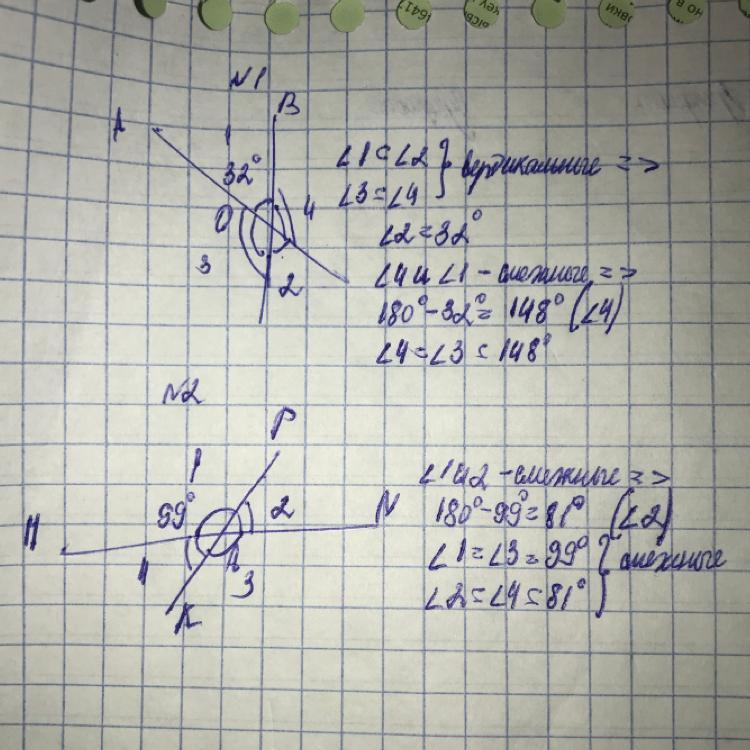 N1
A
B
1
32°
4
O
3
2
∠1 = ∠2 } вертикальные =>
∠3 = ∠4
∠2 = 32°
∠4 и ∠1 - смежные =>
180° - 32° = 148° (∠4)
∠4 = ∠3 = 148°
N2
P
1
99°
2
N
4
3
K
∠1 и 2 - смежные =>
180° - 99° = 81° (∠2)
∠1 = ∠3 = 99° } смежные
∠2 = ∠4 = 81°